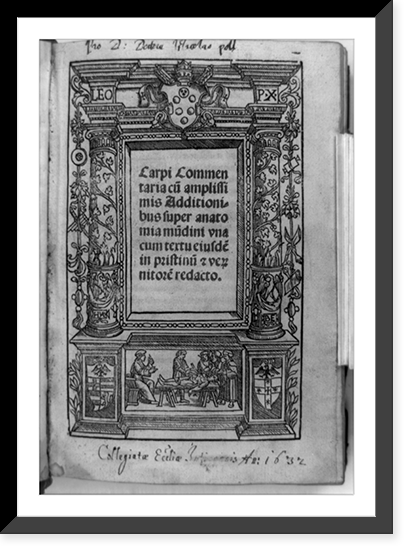 LEO
P·X
Carpi Commen
taria cũ ampliſſi
mis Additioni⸗
bus ſuper anato
mia mũdini vna
cum textu eiuſdẽ
in priſtinũ ⁊ ve⸗
nitorẽ redacto.
Collegiatæ Eccliæ Aō: 1632